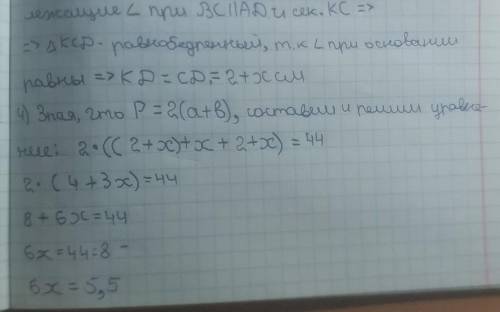 лежащие ∠ при BC||AD и сек. KC =>
=> △KCD - равнобедренный, т.к ∠ при основании
равны => KD = CD = 2+x см
4) Зная, что P = 2(a+b), составим и решим уравне-
ние: 2·((2+x)+x+2+x) = 44
2·(4+3x)=44
8+6x=44
6x=44:8 -
6x = 5,5